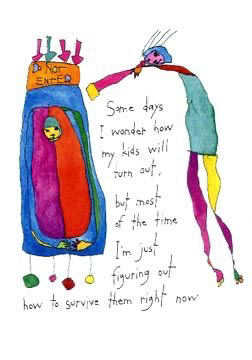 DO NOT
ENTER
Some days
I wonder how
my kids will
turn out,
but most
of the time
I'm just
figuring out
how to survive them right now